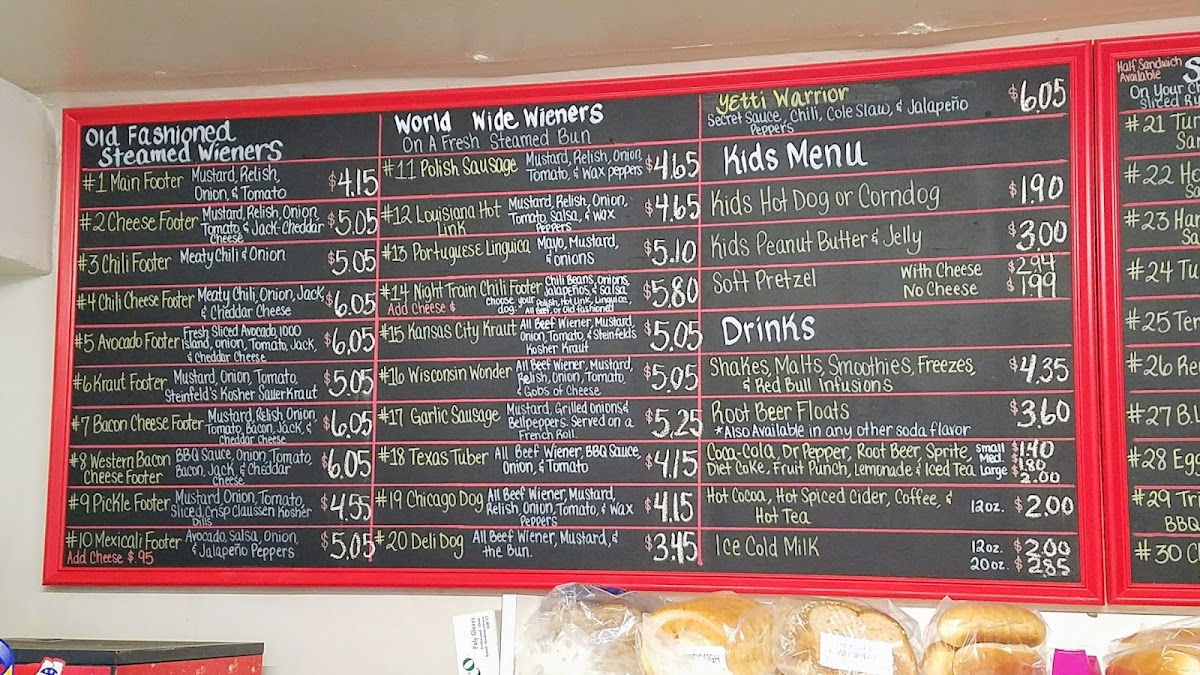 Old Fashioned
Steamed Wieners
#1 Main Footer Mustard, Relish, $4.15
Onion, & Tomato
#2 Cheese Footer Mustard, Relish, Onion, $5.05
Tomato, & Jack-Cheddar
Cheese
#3 Chili Footer Meaty Chili & Onion $5.05
#4 Chili Cheese Footer Meaty Chili, Onion, Jack, $6.05
& Cheddar Cheese
#5 Avocado Footer Fresh Sliced Avocado, 1000 $6.05
Island, Onion, Tomato, Jack,
& Cheddar Cheese
#6 Kraut Footer Mustard, Onion, Tomato, $5.05
Steinfeld's Kosher Sauerkraut
#7 Bacon Cheese Footer Mustard, Relish, Onion $6.05
Tomato, Bacon, Jack, &
Cheddar Cheese
#8 Western Bacon BBQ Sauce, Onion, Tomato, $6.05
Cheese Footer Bacon, Jack, & Cheddar
Cheese
#9 Pickle Footer Mustard, Onion, Tomato, $4.55
Sliced, Crisp Claussen Kosher
Dills
#10 Mexicali Footer Avocado, Salsa, Onion, $5.05
& Jalapeño Peppers
Add Cheese $.95
World Wide Wieners
On A Fresh Steamed Bun
#11 Polish Sausage Mustard, Relish, Onion, $4.65
Tomato, & Wax peppers
#12 Louisiana Hot Mustard, Relish, Onion, $4.65
Link Tomato, Salsa, & Wax
Peppers
#13 Portuguese Linguica Mayo, Mustard, $5.10
& Onions
#14 Night Train Chili Footer Chili Beans, Onions, $5.80
Jalapeños, & Salsa
Add Cheese $ Choose your Polish, Hot Link, Linguica,
dog: All Beef, or Old fashioned
#15 Kansas City Kraut All Beef Wiener, Mustard, $5.05
Onion, Tomato, & Steinfelds
Kosher Kraut
#16 Wisconsin Wonder All Beef Wiener, Mustard, $5.05
Relish, Onion, Tomato,
& Gobs of Cheese
#17 Garlic Sausage Mustard, Grilled onions & $5.25
Bellpeppers. Served on a
French Roll.
#18 Texas Tuber All Beef Wiener, BBQ Sauce, $4.15
Onion, & Tomato
#19 Chicago Dog All Beef Wiener, Mustard, $4.15
Relish, Onion, Tomato, & Wax
Peppers
#20 Deli Dog All Beef Wiener, Mustard, & $3.45
the Bun.
Yetti Warrior $6.05
Secret Sauce, Chili, Cole Slaw, & Jalapeño
Peppers
Kids Menu
Kids Hot Dog or Corndog $1.90
Kids Peanut Butter & Jelly $3.00
Soft Pretzel With Cheese $2.94
No Cheese $1.99
Drinks
Shakes, Malts, Smoothies, Freezes, $4.35
& Red Bull Infusions
Root Beer Floats $3.60
*Also Available in any other soda flavor
Coca-Cola, Dr Pepper, Root Beer, Sprite, Small $1.40
Diet Coke, Fruit Punch, Lemonade & Iced Tea Med. $1.80
Large $2.00
Hot Cocoa, Hot Spiced Cider, Coffee, & 12oz. $2.00
Hot Tea
Ice Cold Milk 12oz. $2.00
20oz. $2.85
Half Sandwich
Available
S
On Your Ch
Sliced R
#21 Tun
San
#22 Ho
#23 Ham
Sa
#24 Tu
#25 Ter
#26 Re
#27 B.L
#28 Egg
#29 Tr
BBQ
#30 C
Poly Gloves